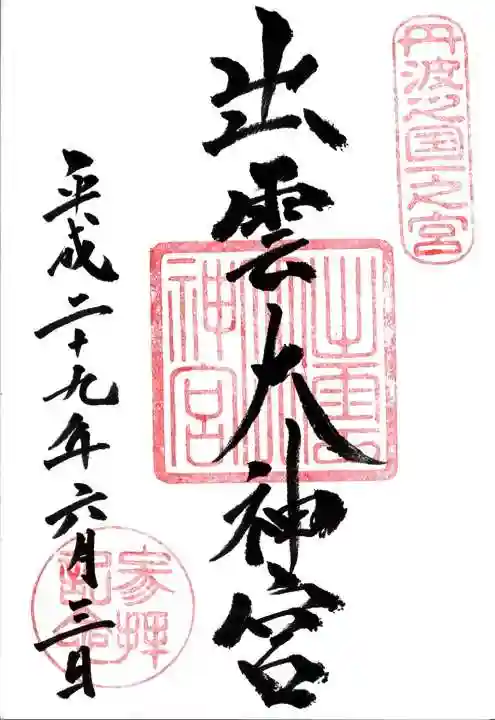 丹波之国一之宮
出雲大神宮
出雲大神宮
平成二十九年六月三日
参拝記念